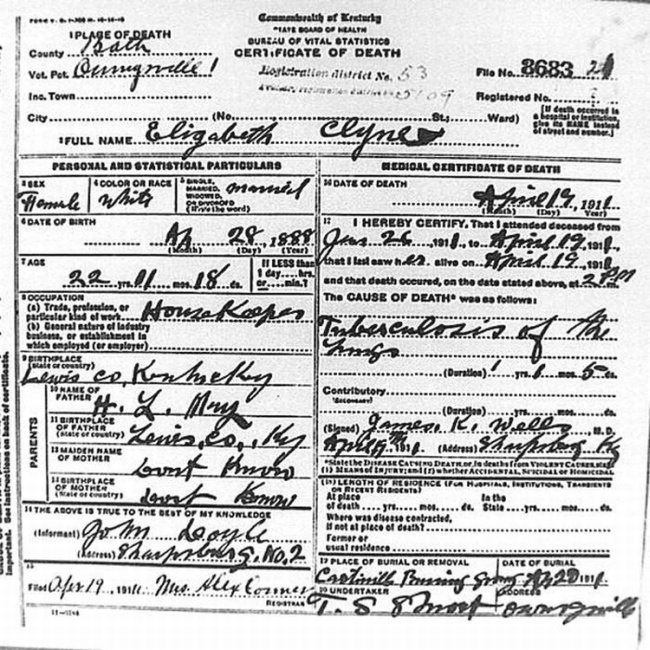 Commonwealth of Kentucky
STATE BOARD OF HEALTH
BUREAU OF VITAL STATISTICS
CERTIFICATE OF DEATH
1 PLACE OF DEATH
County Bath
Vot. Pct.
Inc. Town
City (No. St.; Ward)
Registration district No. 53
5109
File No. 8683
Registered No.
[If death occurred in a hospital or institution, give its NAME instead of street and number.]
2 FULL NAME Elizabeth Clyne
PERSONAL AND STATISTICAL PARTICULARS
3 SEX Female
4 COLOR OR RACE White
5 SINGLE, MARRIED, WIDOWED, OR DIVORCED (Write the word) married
6 DATE OF BIRTH
Ap 28, 1888
(Month) (Day) (Year)
7 AGE
22 yrs. 11 mos. 18 ds.
If LESS than 1 day....hrs. or....min.?
8 OCCUPATION
(a) Trade, profession, or particular kind of work House Keeper
(b) General nature of industry business, or establishment in which employed (or employer)
9 BIRTHPLACE
(State or country)
Lewis co, Kentucky
PARENTS
10 NAME OF FATHER H. L. May
11 BIRTHPLACE OF FATHER (State or country) Lewis, co., Ky
12 MAIDEN NAME OF MOTHER Dont Know
13 BIRTHPLACE OF MOTHER (State or country) dont Know
14 THE ABOVE IS TRUE TO THE BEST OF MY KNOWLEDGE
(Informant) John Doyle
(Address) Sharpsburg, No, 2
15
Filed Apr 19, 1911 Mrs. Alex Conner
REGISTRAR
MEDICAL CERTIFICATE OF DEATH
16 DATE OF DEATH
April 19, 1911
(Month) (Day) (Year)
17 I HEREBY CERTIFY, That I attended deceased from
Jan 26, 1911, to April 19, 1911,
that I last saw her alive on April 19, 1911,
and that death occurred, on the date stated above, at 2 PM
The CAUSE OF DEATH* was as follows:
Tuberculosis of the
Lungs
(Duration) yrs. mos. 5 ds.
Contributory
(SECONDARY)
(Duration) yrs. mos. ds.
(Signed) James. K. Wells M. D.
April 19, 1911 (Address) Sharpsburg Ky
*State the DISEASE CAUSING DEATH, or, in deaths from VIOLENT CAUSES, state (1) MEANS OF INJURY; and (2) whether ACCIDENTAL, SUICIDAL or HOMICIDAL
18 LENGTH OF RESIDENCE (FOR HOSPITALS, INSTITUTIONS, TRANSIENTS OR RECENT RESIDENTS)
At place of death yrs. mos. ds. In the State yrs. mos. ds.
Where was disease contracted, if not at place of death?
Former or usual residence
19 PLACE OF BURIAL OR REMOVAL
DATE OF BURIAL
Ap 20 1911
20 UNDERTAKER
ADDRESS
T. S. Owingsville